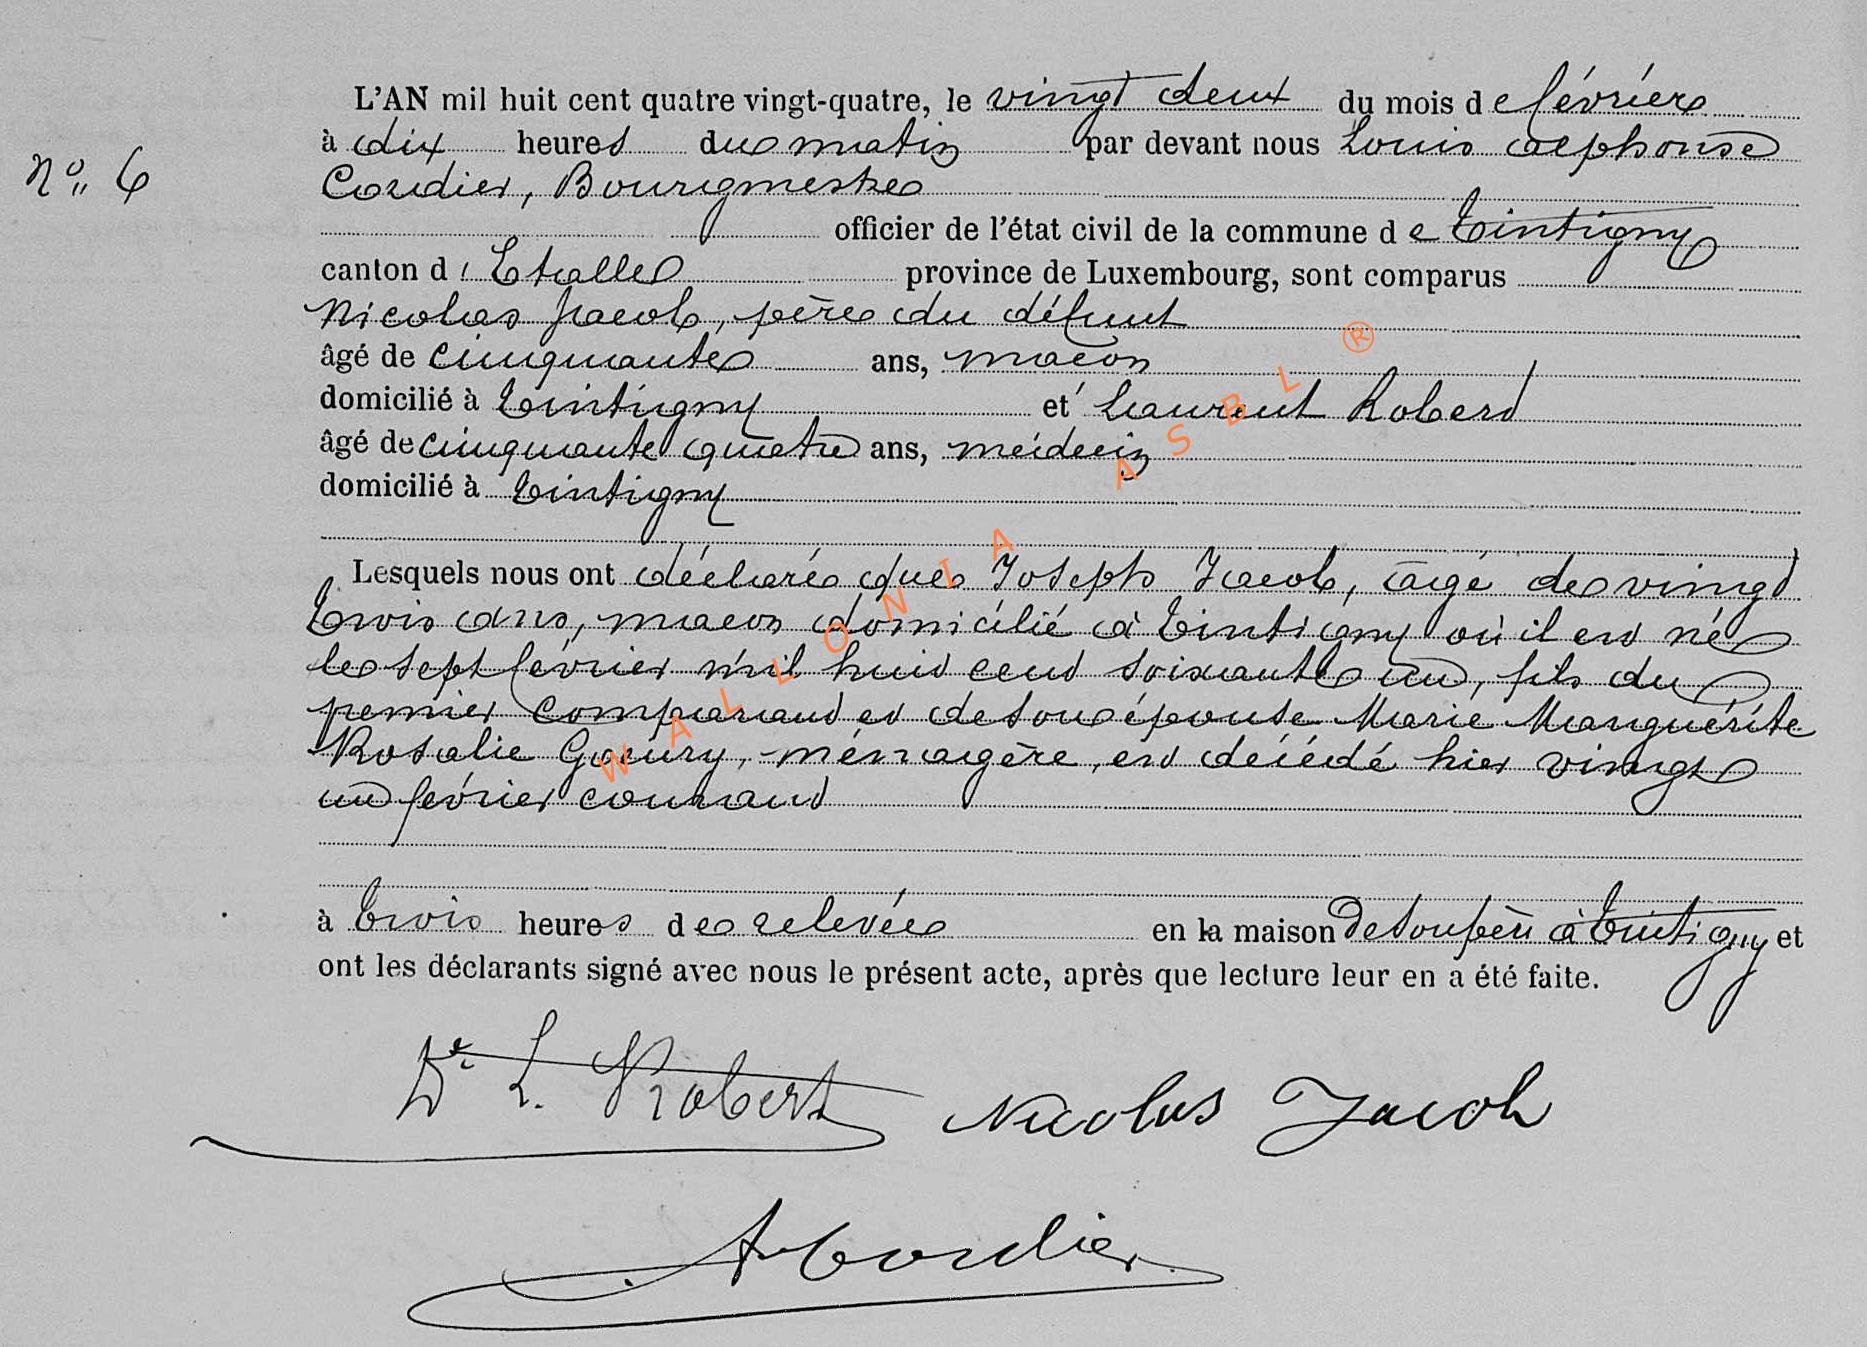 L'AN mil huit cent quatre vingt-quatre, le vingt deux du mois de février
à dix heures du matin par devant nous Louis alphonse
N° 6
Cordier, Bourgmestre
officier de l'état civil de la commune de Tintigny
canton d'Etalle province de Luxembourg, sont comparus
Nicolas Jacob, père du défunt
âgé de cinquante ans, macon
domicilié à Tintigny et Laurent Robert
âgé de cinquante quatre ans, médecin
domicilié à Tintigny
Lesquels nous ont déclaré que Joseph Jacob, âgé de vingt
trois ans, macon domicilié à Tintigny où il est né
le sept février mil huit cent soixante un, fils du
premier comparant et de son épouse Marie Marguérite
Rosalie Goury, ménagère, est décédé hier vingt
un février courant
à trois heures de relevée en la maison de son père à Tintigny et
ont les déclarants signé avec nous le présent acte, après que lecture leur en a été faite.
Dr L. Robert Nicolas Jacob
A Cordier
WALLONIA ASBL ®